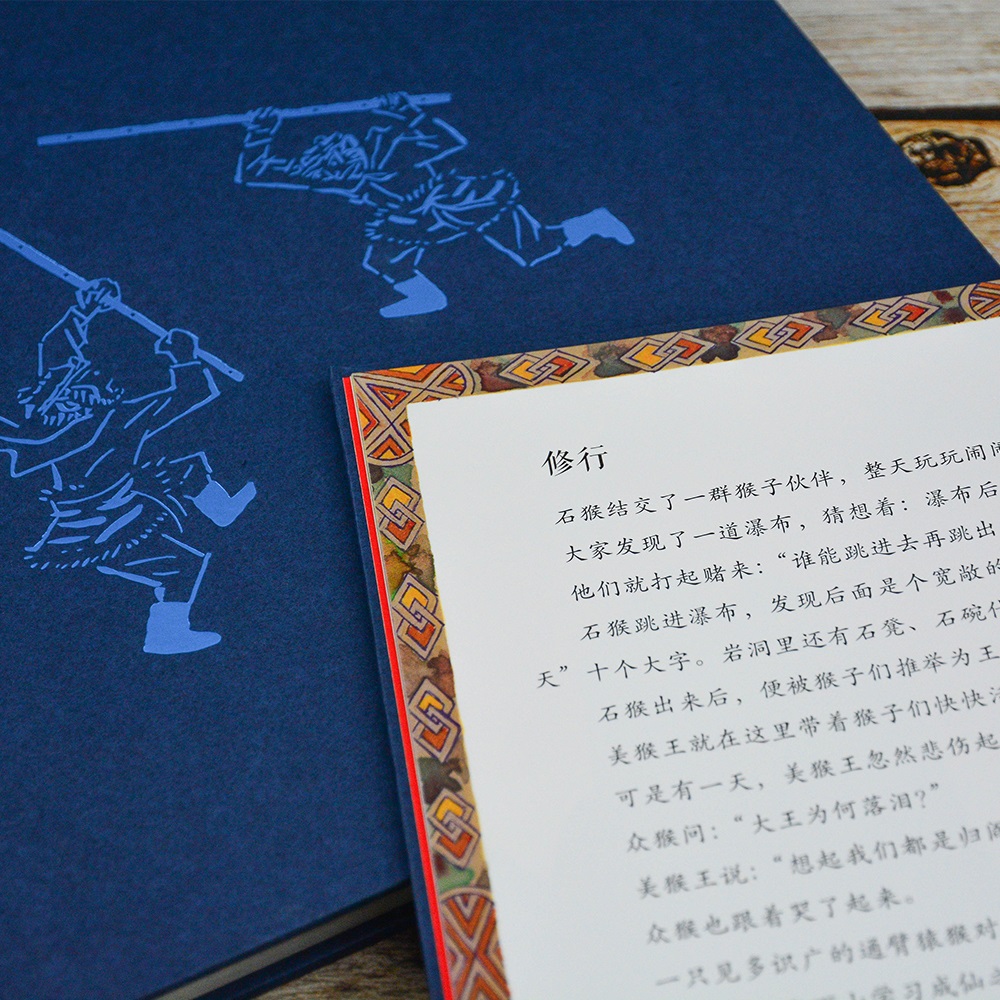 修行
石猴结交了一群猴子伙伴，整天玩玩闹闹
大家发现了一道瀑布，猜想着：瀑布后
他们就打起赌来：“谁能跳进去再跳出
石猴跳进瀑布，发现后面是个宽敞的
天”十个大字。岩洞里还有石凳、石碗
石猴出来后，便被猴子们推举为王
美猴王就在这里带着猴子们快快
可是有一天，美猴王忽然悲伤起
众猴问：“大王为何落泪？”
美猴王说：“想起我们都是归
众猴也跟着哭了起来。
一只见多识广的通臂猿猴对
学习成仙